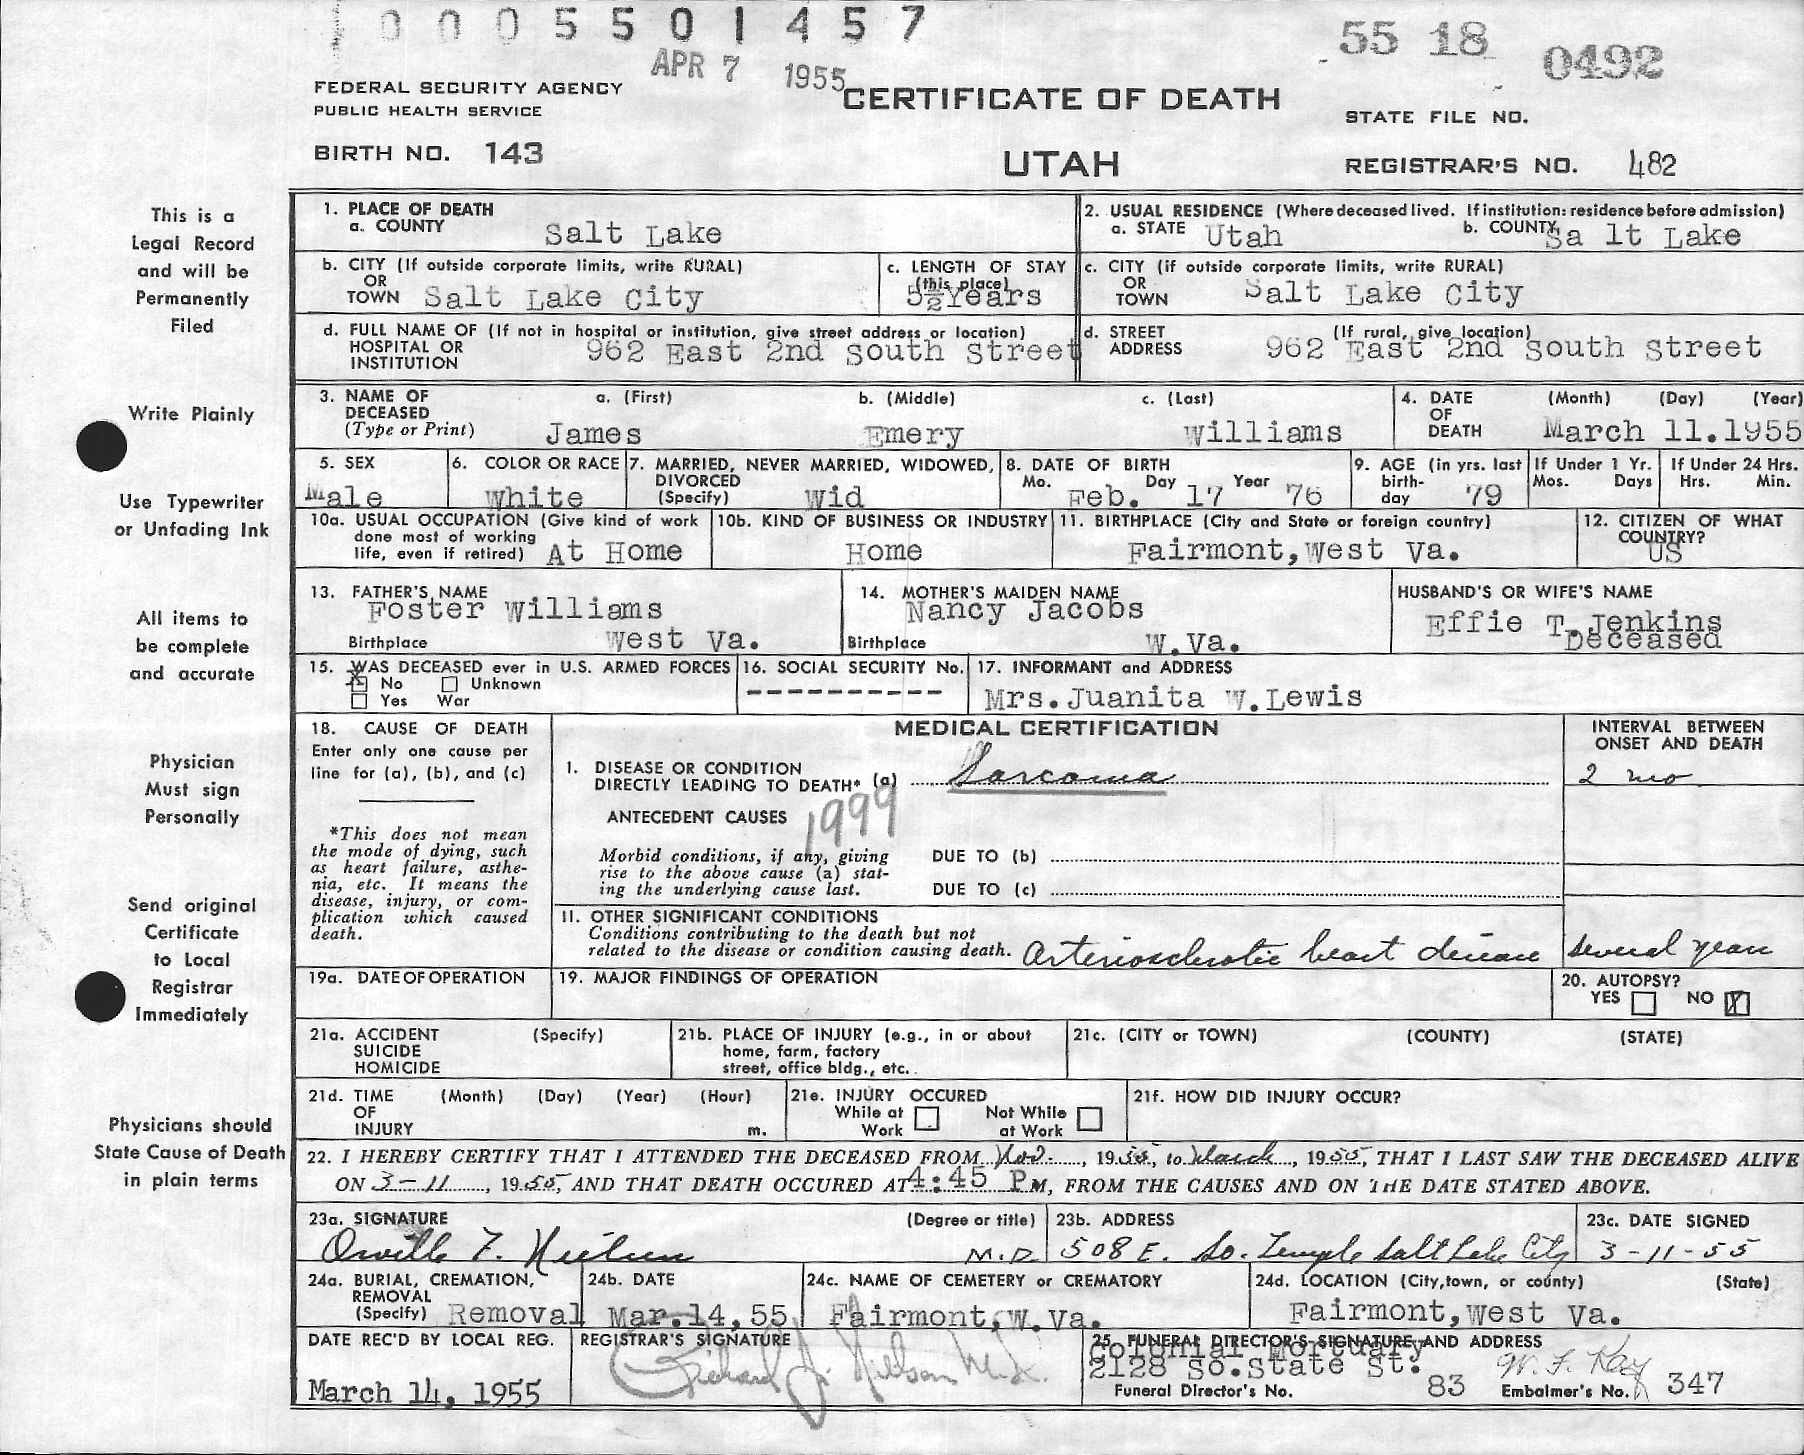 10005501457
APR 7 1955
55 18 0492
FEDERAL SECURITY AGENCY
PUBLIC HEALTH SERVICE
CERTIFICATE OF DEATH
STATE FILE NO.
BIRTH NO. 143
UTAH
REGISTRAR'S NO. 482
This is a
Legal Record
and will be
Permanently
Filed
Write Plainly
Use Typewriter
or Unfading Ink
All items to
be complete
and accurate
Physician
Must sign
Personally
Send original
Certificate
to Local
Registrar
Immediately
Physicians should
State Cause of Death
in plain terms
1. PLACE OF DEATH
a. COUNTY Salt Lake
2. USUAL RESIDENCE (Where deceased lived. If institution: residence before admission)
a. STATE Utah b. COUNTY Sa lt Lake
b. CITY (If outside corporate limits, write RURAL)
OR
TOWN Salt Lake City
c. LENGTH OF STAY
(this place)
5½Years
c. CITY (if outside corporate limits, write RURAL)
OR
TOWN Salt Lake City
d. FULL NAME OF (If not in hospital or institution, give street address or location)
HOSPITAL OR
INSTITUTION 962 East 2nd South Street
d. STREET (If rural, give location)
ADDRESS 962 East 2nd South Street
3. NAME OF a. (First) b. (Middle) c. (Last)
DECEASED
(Type or Print) James Emery Williams
4. DATE (Month) (Day) (Year)
OF
DEATH March 11.1955
5. SEX
Male
6. COLOR OR RACE
White
7. MARRIED, NEVER MARRIED, WIDOWED,
DIVORCED
(Specify) Wid
8. DATE OF BIRTH
Mo. Day Year
Feb. 17 76
9. AGE (in yrs. last
birth-
day 79
If Under 1 Yr.
Mos. Days
If Under 24 Hrs.
Hrs. Min.
10a. USUAL OCCUPATION (Give kind of work
done most of working
life, even if retired) At Home
10b. KIND OF BUSINESS OR INDUSTRY
Home
11. BIRTHPLACE (City and State or foreign country)
Fairmont,West Va.
12. CITIZEN OF WHAT
COUNTRY?
US
13. FATHER'S NAME
Foster Williams
Birthplace West Va.
14. MOTHER'S MAIDEN NAME
Nancy Jacobs
Birthplace W.Va.
HUSBAND'S OR WIFE'S NAME
Effie T. Jenkins
Deceased
15. WAS DECEASED ever in U.S. ARMED FORCES
X No Unknown
Yes War
16. SOCIAL SECURITY No.
-----------
17. INFORMANT and ADDRESS
Mrs.Juanita W.Lewis
18. CAUSE OF DEATH
Enter only one cause per
line for (a), (b), and (c)
*This does not mean
the mode of dying, such
as heart failure, asthe-
nia, etc. It means the
disease, injury, or com-
plication which caused
death.
MEDICAL CERTIFICATION
INTERVAL BETWEEN
ONSET AND DEATH
1. DISEASE OR CONDITION
DIRECTLY LEADING TO DEATH* (a) Sarcoma 2 mo
1999
ANTECEDENT CAUSES
Morbid conditions, if any, giving
rise to the above cause (a) stat-
ing the underlying cause last.
DUE TO (b)
DUE TO (c)
11. OTHER SIGNIFICANT CONDITIONS
Conditions contributing to the death but not
related to the disease or condition causing death. Arteriosclerotic heart disease several years
19a. DATE OF OPERATION
19. MAJOR FINDINGS OF OPERATION
20. AUTOPSY?
YES NO X
21a. ACCIDENT (Specify)
SUICIDE
HOMICIDE
21b. PLACE OF INJURY (e.g., in or about
home, farm, factory
street, office bldg., etc.
21c. (CITY or TOWN) (COUNTY) (STATE)
21d. TIME (Month) (Day) (Year) (Hour)
OF
INJURY m.
21e. INJURY OCCURED
While at Not While
Work at Work
21f. HOW DID INJURY OCCUR?
22. I HEREBY CERTIFY THAT I ATTENDED THE DECEASED FROM Nov. , 19 , to March , 1955, THAT I LAST SAW THE DECEASED ALIVE
ON 3-11 , 1955, AND THAT DEATH OCCURED AT 4:45 P M, FROM THE CAUSES AND ON THE DATE STATED ABOVE.
23a. SIGNATURE (Degree or title)
Orville F. Nielsen M.D.
23b. ADDRESS
508 E. So. Temple Salt Lake City
23c. DATE SIGNED
3-11-55
24a. BURIAL, CREMATION,
REMOVAL
(Specify) Removal
24b. DATE
Mar.14,55
24c. NAME OF CEMETERY or CREMATORY
Fairmont,W.Va.
24d. LOCATION (City,town, or county) (State)
Fairmont,West Va.
DATE REC'D BY LOCAL REG.
March 14, 1955
REGISTRAR'S SIGNATURE
Richard J. Nielson M.D.
25. FUNERAL DIRECTOR'S SIGNATURE AND ADDRESS
Colonial Mortuary
2128 So.State St. W. F. Kay
Funeral Director's No. 83 Embalmer's No. 347